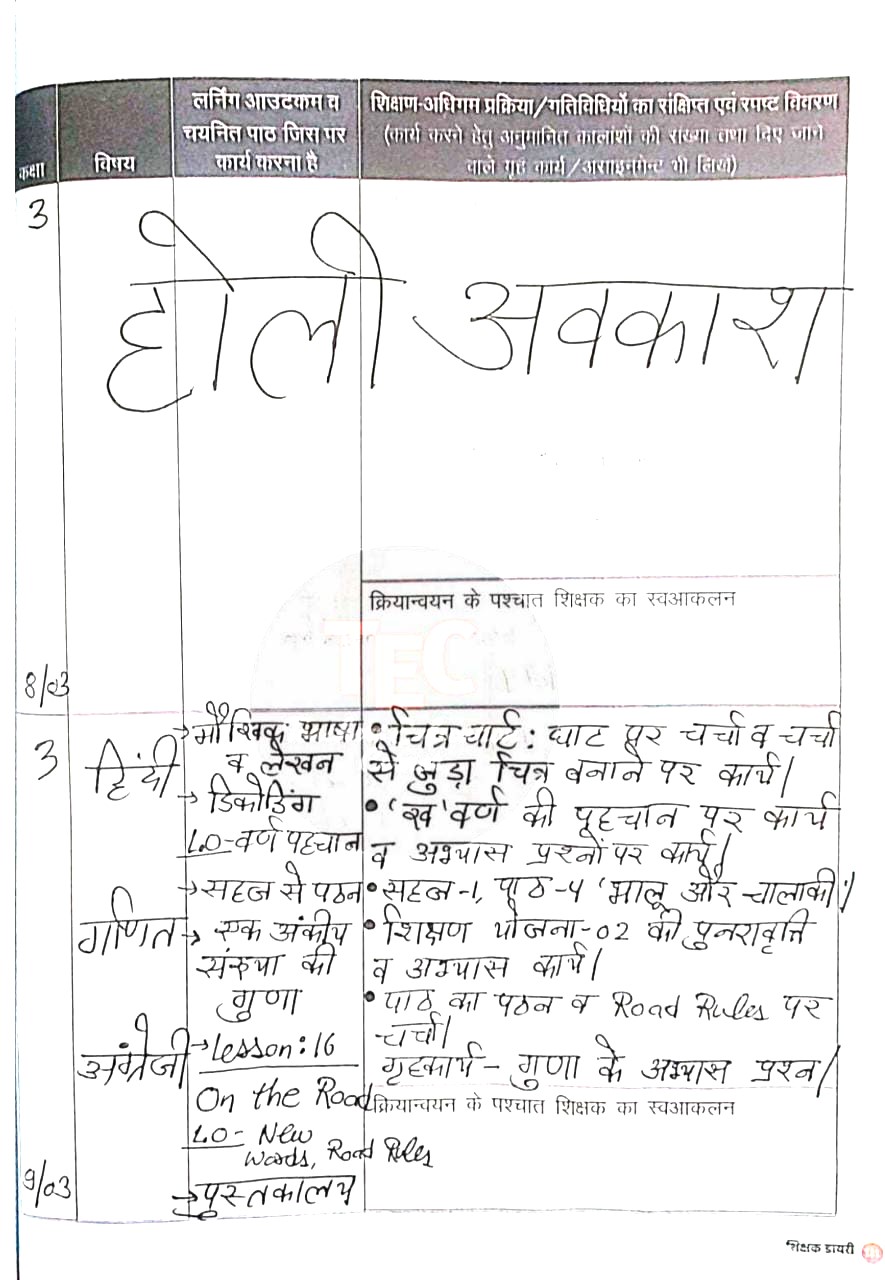 कक्षा
विषय
लर्निंग आउटकम व
चयनित पाठ जिस पर
कार्य करना है
शिक्षण-अधिगम प्रक्रिया/गतिविधियों का संक्षिप्त एवं स्पष्ट विवरण
(कार्य करने हेतु अनुमानित कालांशों की संख्या तथा दिए जाने
वाले गृह कार्य/असाइनमेन्ट भी लिखें)
3
होली अवकाश
क्रियान्वयन के पश्चात शिक्षक का स्वआकलन
8/03
TEC
3
हिंदी
→ मौखिक भाषा
व लेखन
→ डिकोडिंग
L.O-वर्ण पहचान
→ सहज से पठन
• चित्र चार्ट: घाट पर चर्चा व चर्चा
से जुड़ा चित्र बनाने पर कार्य।
• 'ख' वर्ण की पहचान पर कार्य
व अभ्यास प्रश्नों पर कार्य।
• सहज-1, पाठ-4 'भालू और चालाकी'।
गणित
→ एक अंकीय
संख्या की
गुणा
• शिक्षण योजना-02 की पुनरावृत्ति
व अभ्यास कार्य।
अंग्रेजी
→ Lesson: 16
On the Road
L.O- New
words, Road Rules
→ पुस्तकालय
• पाठ का पठन व Road Rules पर
चर्चा।
गृहकार्य - गुणा के अभ्यास प्रश्न।
क्रियान्वयन के पश्चात शिक्षक का स्वआकलन
9/03
शिक्षक डायरी